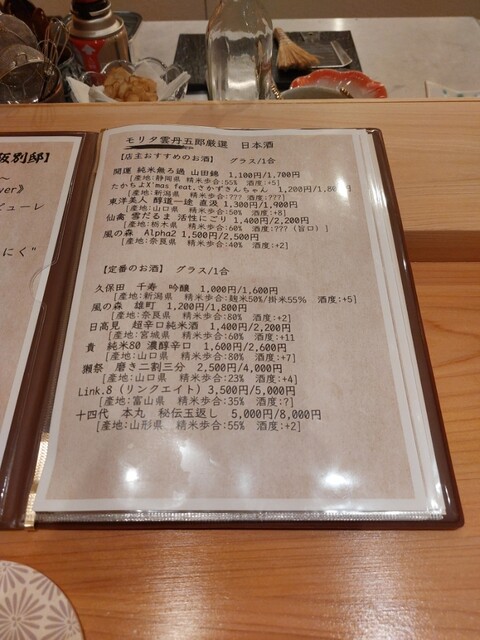 阪別邸】
ver》
ピューレ
にく"
モリタ雲丹五郎厳選 日本酒
【店主おすすめのお酒】 グラス/1合
開運 純米無ろ過 山田錦 1,100円/1,700円
[産地:静岡県 精米歩合:55% 酒度:+5]
たかちよX'mas feat.さかずきんちゃん 1,200円/1,800円
[産地:新潟県 精米歩合:??? 酒度:???]
東洋美人 醇道一途 直汲 1,300円/1,900円
[産地:山口県 精米歩合:50% 酒度:+8]
仙禽 雪だるま 活性にごり 1,400円/2,200円
[産地:栃木県 精米歩合:60% 酒度:???(旨口)]
風の森 Alpha2 1,500円/2,500円
[産地:奈良県 精米歩合:40% 酒度:+2]
【定番のお酒】 グラス/1合
久保田 千寿 吟醸 1,000円/1,600円
[産地:新潟県 精米歩合:麹米50%/掛米55% 酒度:+5]
風の森 雄町 1,200円/1,800円
[産地:奈良県 精米歩合:80% 酒度:+2]
日高見 超辛口純米酒 1,400円/2,200円
[産地:宮城県 精米歩合:60% 酒度:+11
貴 純米80 濃醇辛口 1,600円/2,600円
[産地:山口県 精米歩合:80% 酒度:+7]
獺祭 磨き二割三分 2,500円/4,000円
[産地:山口県 精米歩合:23% 酒度:+4]
Link.8(リンクエイト)3,500円/5,000円
[産地:富山県 精米歩合:35% 酒度:?]
十四代 本丸 秘伝玉返し 5,000円/8,000円
[産地:山形県 精米歩合:55% 酒度:+2]